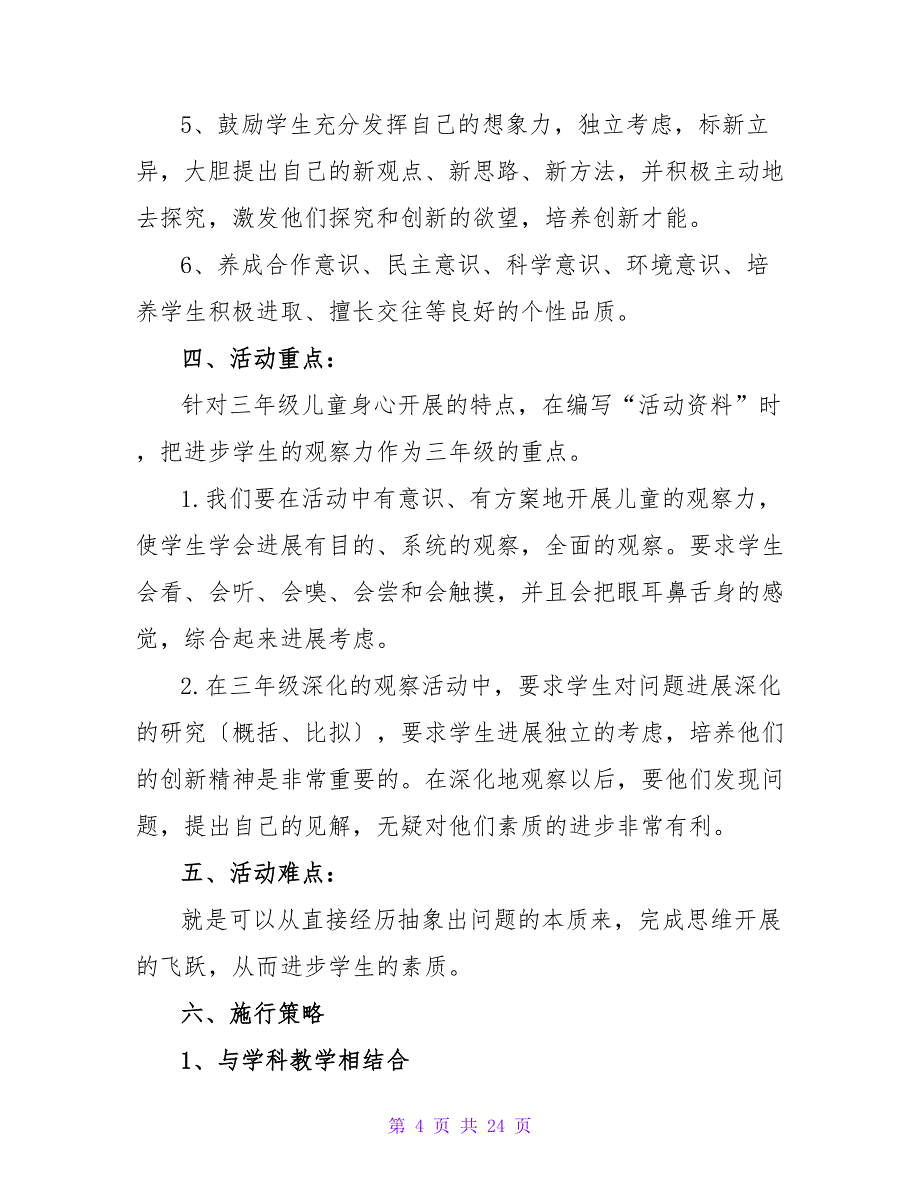 5、鼓励学生充分发挥自己的想象力，独立考虑，标新立
异，大胆提出自己的新观点、新思路、新方法，并积极主动地
去探究，激发他们探究和创新的欲望，培养创新才能。
6、养成合作意识、民主意识、科学意识、环境意识、培
养学生积极进取、擅长交往等良好的个性品质。
四、活动重点：
针对三年级儿童身心开展的特点，在编写“活动资料”时
，把进步学生的观察力作为三年级的重点。
1.我们要在活动中有意识、有方案地开展儿童的观察力，
使学生学会进展有目的、系统的观察，全面的观察。要求学生
会看、会听、会嗅、会尝和会触摸，并且会把眼耳鼻舌身的感
觉，综合起来进展考虑。
2.在三年级深化的观察活动中，要求学生对问题进展深化
的研究〔概括、比拟〕，要求学生进展独立的考虑，培养他们
的创新精神是非常重要的。在深化地观察以后，要他们发现问
题，提出自己的见解，无疑对他们素质的进步非常有利。
五、活动难点：
就是可以从直接经历抽象出问题的本质来，完成思维开展
的飞跃，从而进步学生的素质。
六、施行策略
1、与学科教学相结合
第 4 页 共 24 页